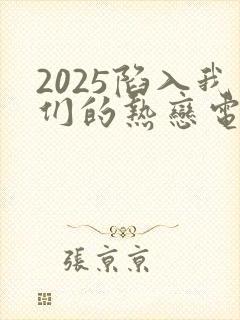 2025陷入我
们的热戀電
張京京